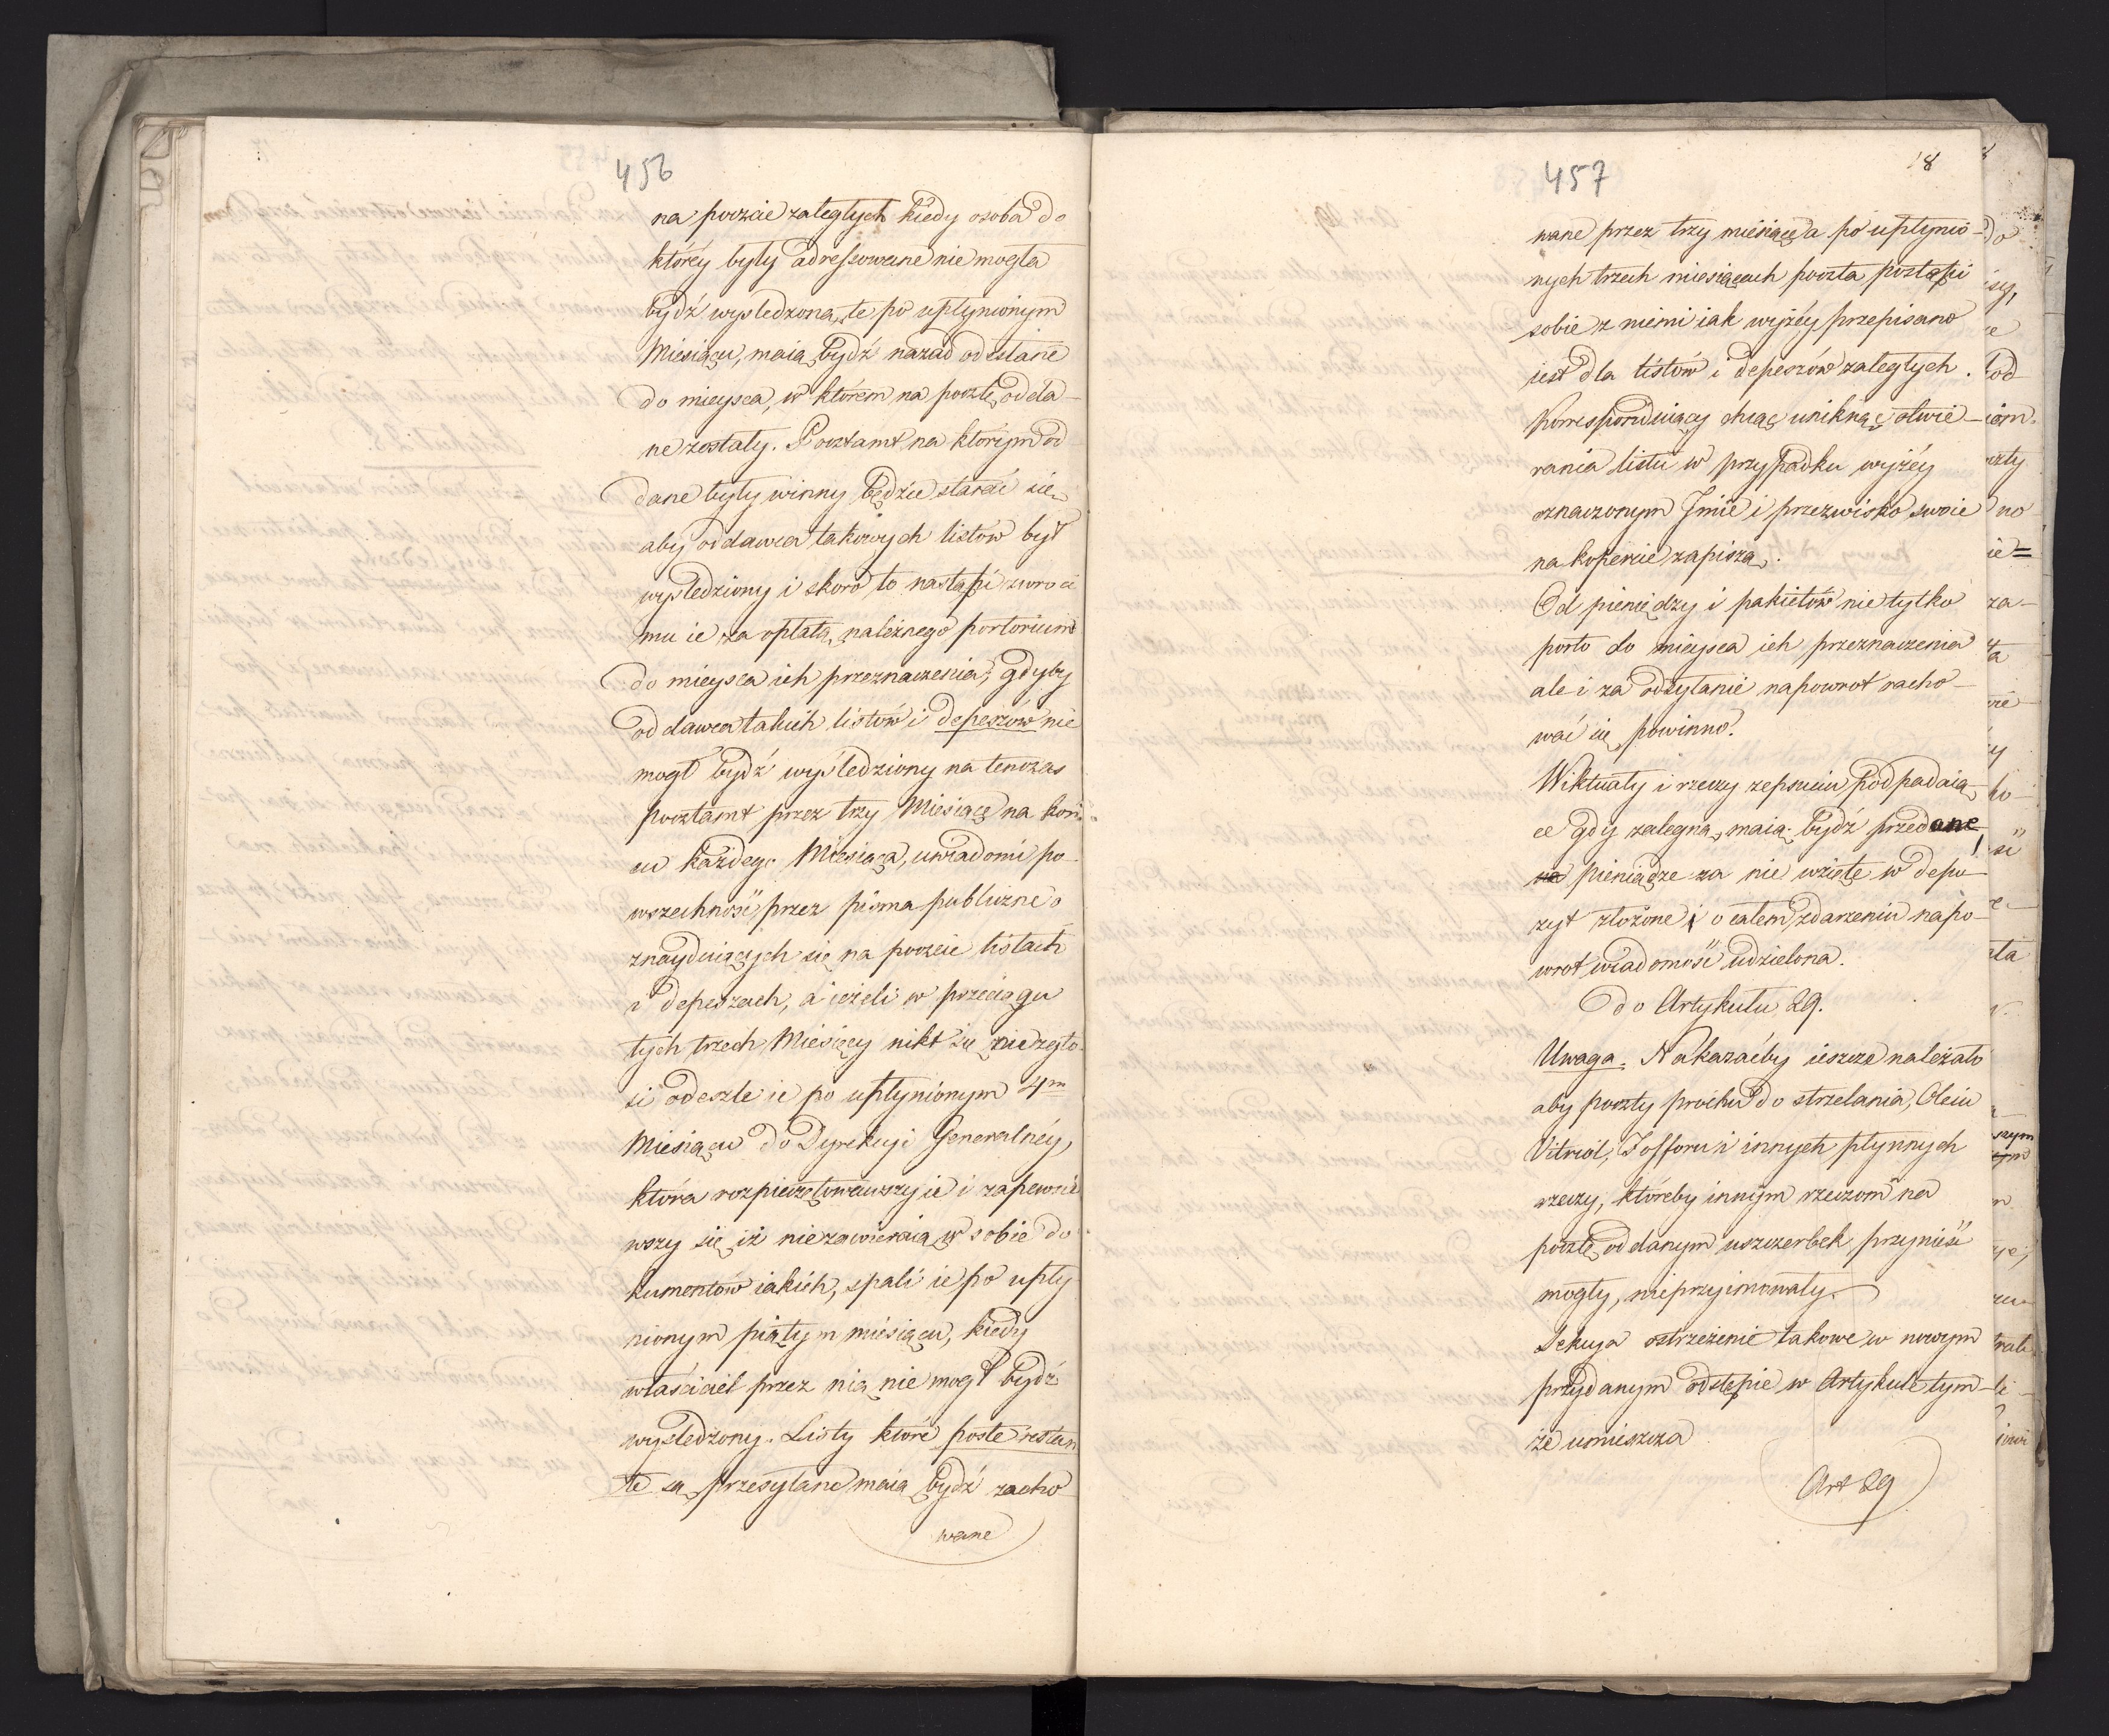 456
na poczcie zaległych kiedy osoba do
któréy były adressowane nie mogła
bydź wyśledzona, te po upłynionym
Miesiącu, maią bydź nazad odesłane
do mieysca, w którem na pocztę odda-
ne zostały. Pocztamt na którym od
dane były winny będzie starać się
aby oddawca takowych listów był
wyśledziony i skoro to nastąpi zwróci
mu ie za opłatą należnego portorium
do mieysca ich przeznaczenia, gdyby
oddawca takich listów i depeszów nie
mógł bydź wyśledziony na tenczas
pocztamt przez trzy Miesiące na koń-
cu każdego Miesiąca, uwiadomi po-
wszechność przez pisma publiczne o
znayduiących się na poczcie listach
i depeszach, a ieżeli w przeciągu
tych trzech Miesięcy nikt się nie zgło-
si odeszle ie po upłynionym 4m
Miesiącu do Dyrekcyi Generalnéy,
która rozpieczętowawszy ie i zapewni
wszy się iż nie zawieraią w sobie do
kumentów iakich, spali ie po upły-
nionym piątym miesiącu, kiedy
właściciel przez nią nie mógł bydź
wyśledzony. Listy które poste restan
te są przesyłane maią bydź zacho-
wane
457
18
wane przez trzy miesiące a po upłynio-
nych trzech miesiącach poczta postąpi
sobie z niemi iak wyżéy przepisano
iest dla listów i depeszów zaległych.
Korresponduiący chcąc uniknąć otwie-
rania listu w przypadku wyżéy
oznaczonym Imie i przezwisko swoie
na kopercie zapiszą.
Od pieniędzy i pakietów nie tylko
porto do mieysca ich przeznaczenia
ale i za odsyłanie napowrot racho-
wać się powinno.
Wiktuały i rzeczy zepsuciu podpadaią
ce gdy zalegną, maią bydź przedane,
na pieniądze za nie wzięte w depo-
zyt złożone i o całem zdarzeniu napo-
wrot wiadomość udzielona.
do Artykułu 29.
Uwaga. Nakazaćby ieszcze należało
aby poczty prochu do strzelania, Oleiu
Vitriol, Fosforu i innych płynnych
rzeczy, któreby innym rzeczom na
pocztę oddanym uszczerbek przynieść
mogły, nieprzyimowały.
Sekcya ostrzeżenie takowe w nowym
przydanym odstępie w Artykule tym-
że umieszcza
Art 29